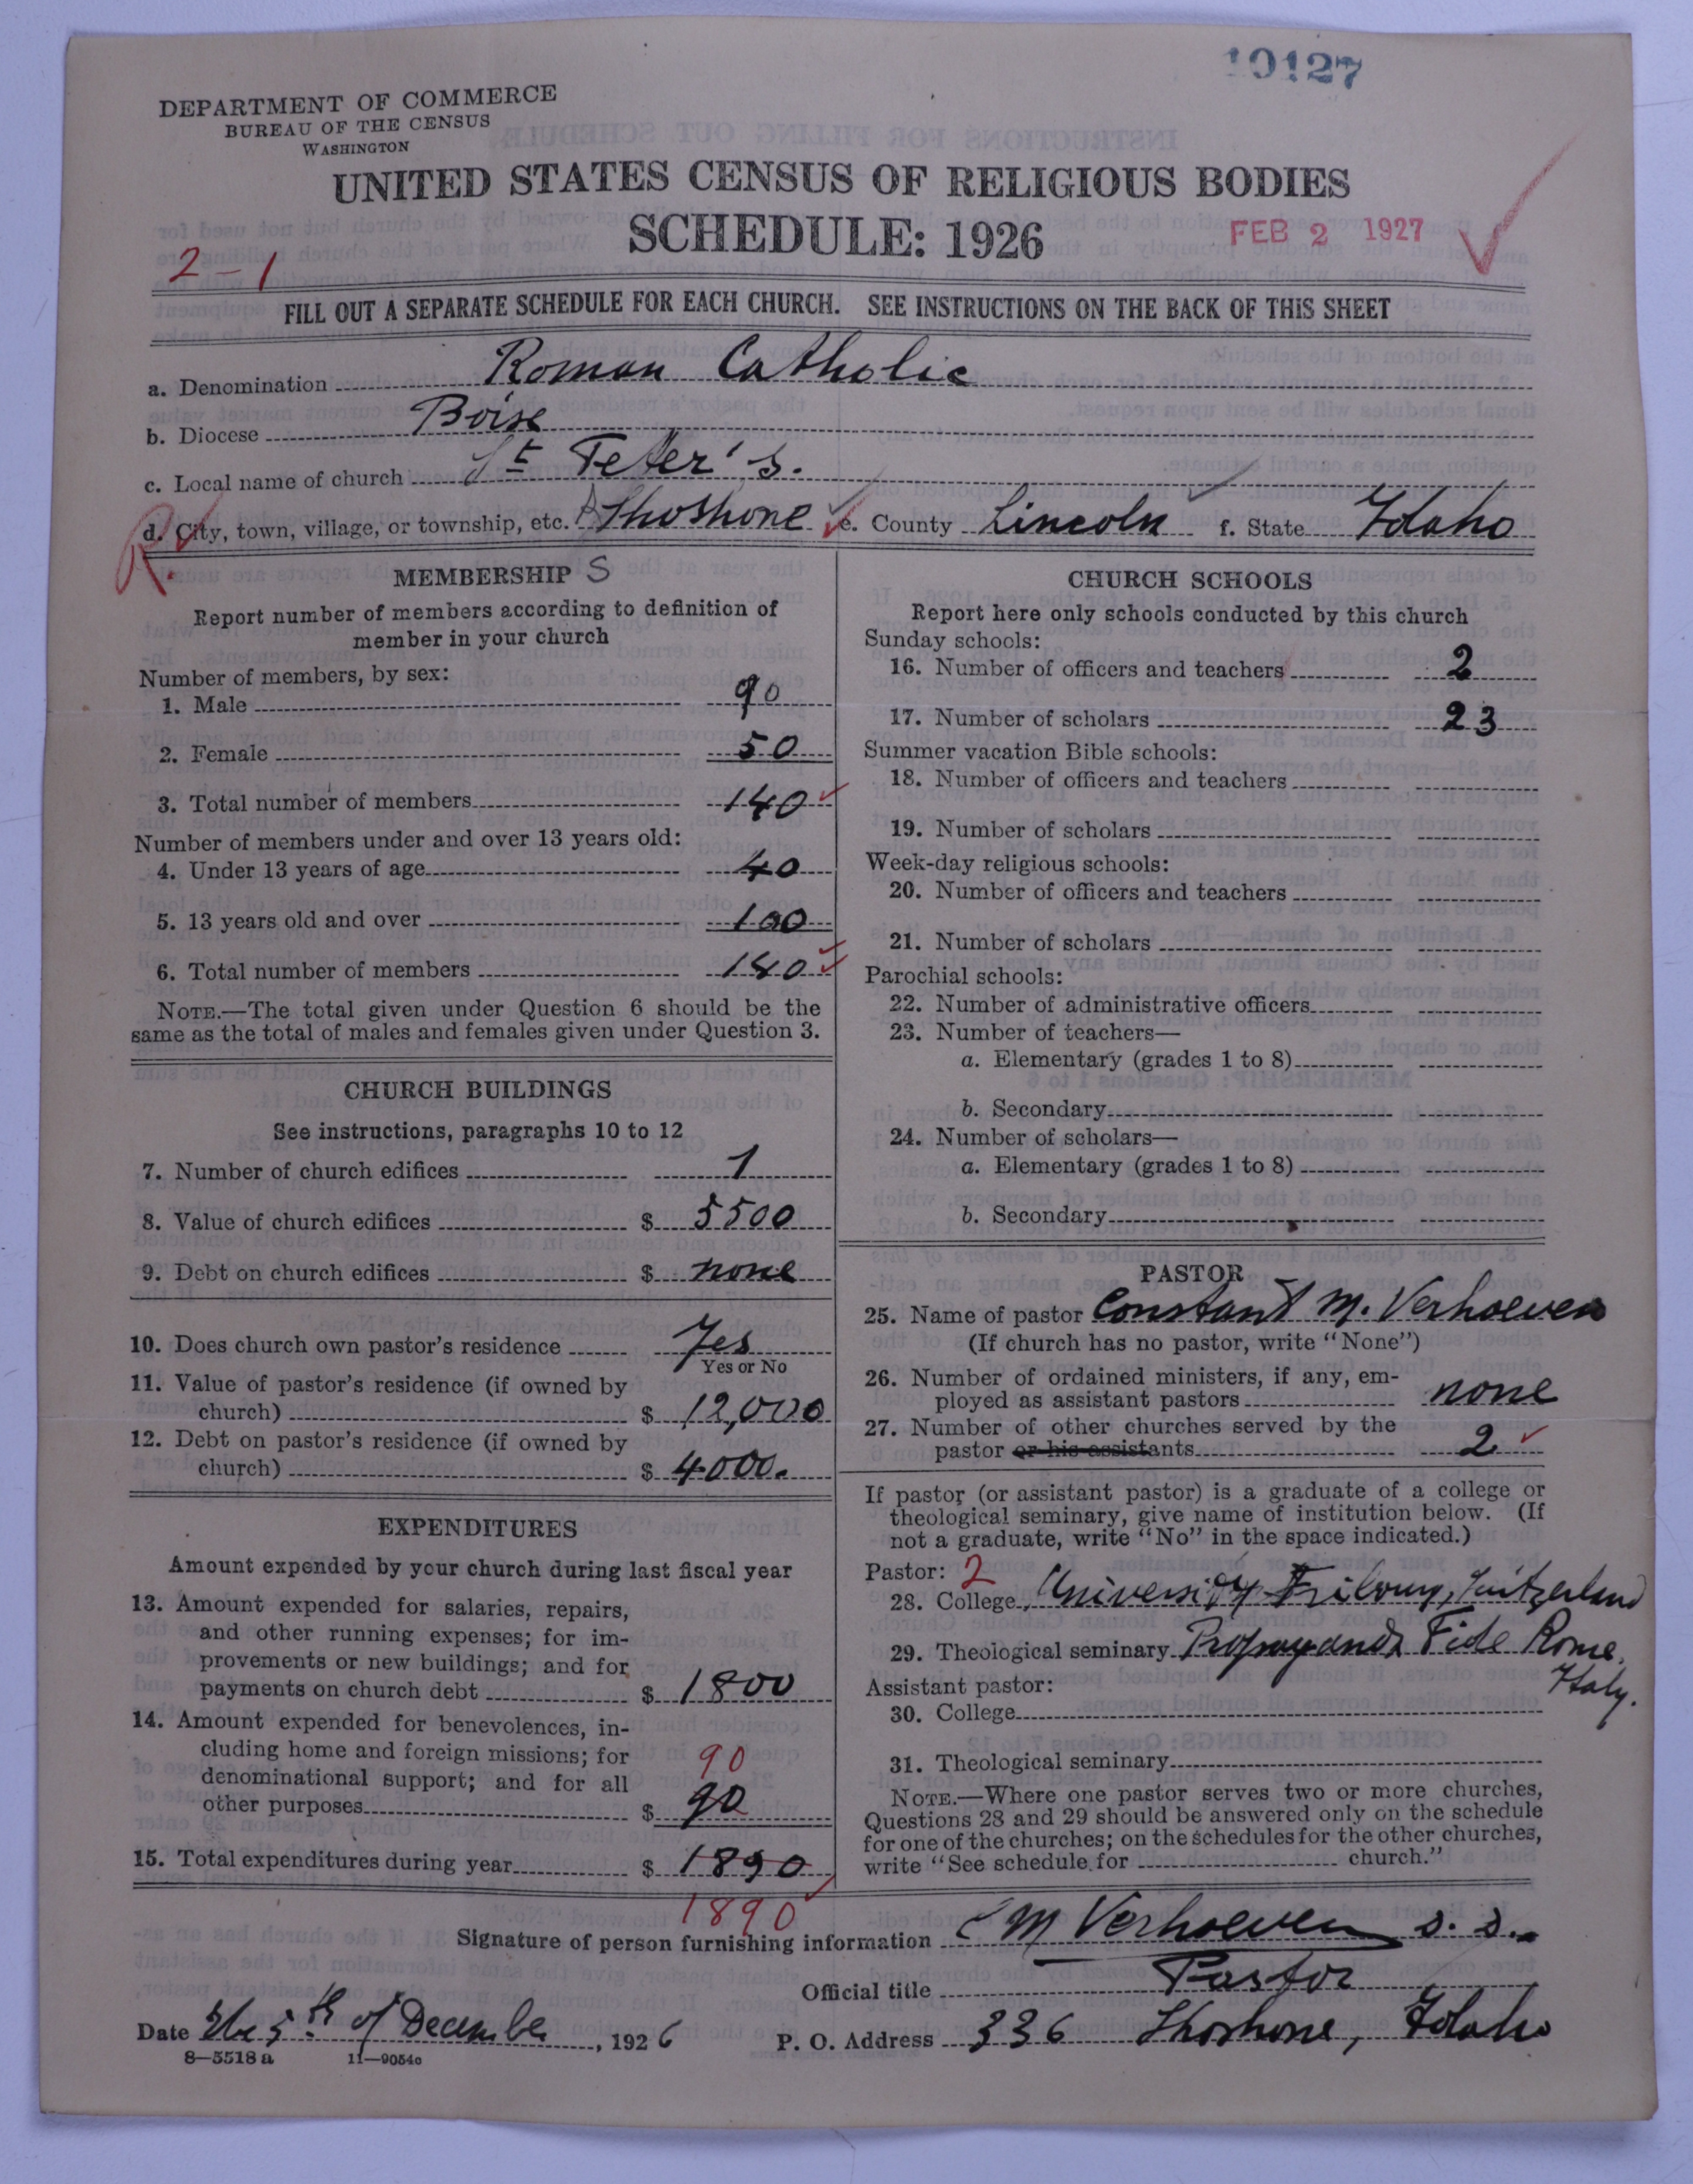 10127
DEPARTMENT OF COMMERCE
BUREAU OF THE CENSUS
WASHINGTON
UNITED STATES CENSUS OF RELIGIOUS BODIES
SCHEDULE: 1926
FEB 2 1927
2-1
FILL OUT A SEPARATE SCHEDULE FOR EACH CHURCH. SEE INSTRUCTIONS ON THE BACK OF THIS SHEET
a. Denomination Roman Catholic
b. Diocese Boise
c. Local name of church St Peter's.
d. City, town, village, or township, etc. Shoshone e. County Lincoln f. State Idaho
R.
MEMBERSHIP S
Report number of members according to definition of
member in your church
Number of members, by sex:
1. Male 90
2. Female 50
3. Total number of members 140
Number of members under and over 13 years old:
4. Under 13 years of age 40
5. 13 years old and over 100
6. Total number of members 140
NOTE.—The total given under Question 6 should be the
same as the total of males and females given under Question 3.
CHURCH BUILDINGS
See instructions, paragraphs 10 to 12
7. Number of church edifices 1
8. Value of church edifices $ 5500
9. Debt on church edifices $ none
10. Does church own pastor's residence Yes
Yes or No
11. Value of pastor's residence (if owned by
church) $ 12,000
12. Debt on pastor's residence (if owned by
church) $ 4000.
EXPENDITURES
Amount expended by your church during last fiscal year
13. Amount expended for salaries, repairs,
and other running expenses; for im-
provements or new buildings; and for
payments on church debt $ 1800
14. Amount expended for benevolences, in-
cluding home and foreign missions; for
denominational support; and for all
90
other purposes $ 90
15. Total expenditures during year $ 1890
1890
CHURCH SCHOOLS
Report here only schools conducted by this church
Sunday schools:
16. Number of officers and teachers 2
17. Number of scholars 23
Summer vacation Bible schools:
18. Number of officers and teachers
19. Number of scholars
Week-day religious schools:
20. Number of officers and teachers
21. Number of scholars
Parochial schools:
22. Number of administrative officers
23. Number of teachers—
a. Elementary (grades 1 to 8)
b. Secondary
24. Number of scholars—
a. Elementary (grades 1 to 8)
b. Secondary
PASTOR
25. Name of pastor Constant M. Verhoeven
(If church has no pastor, write "None")
26. Number of ordained ministers, if any, em-
ployed as assistant pastors none
27. Number of other churches served by the
pastor or his assistants 2
If pastor (or assistant pastor) is a graduate of a college or
theological seminary, give name of institution below. (If
not a graduate, write "No" in the space indicated.)
Pastor: 2
28. College University Fribourg, Switzerland
29. Theological seminary Propaganda Fide Rome,
Italy.
Assistant pastor:
30. College
31. Theological seminary
NOTE.—Where one pastor serves two or more churches,
Questions 28 and 29 should be answered only on the schedule
for one of the churches; on the schedules for the other churches,
write "See schedule for church."
Signature of person furnishing information C M Verhoeven s. s.
Official title Pastor
Date the 5th of December, 1926 P. O. Address 336 Shoshone, Idaho
8-5518 a 11-9054c